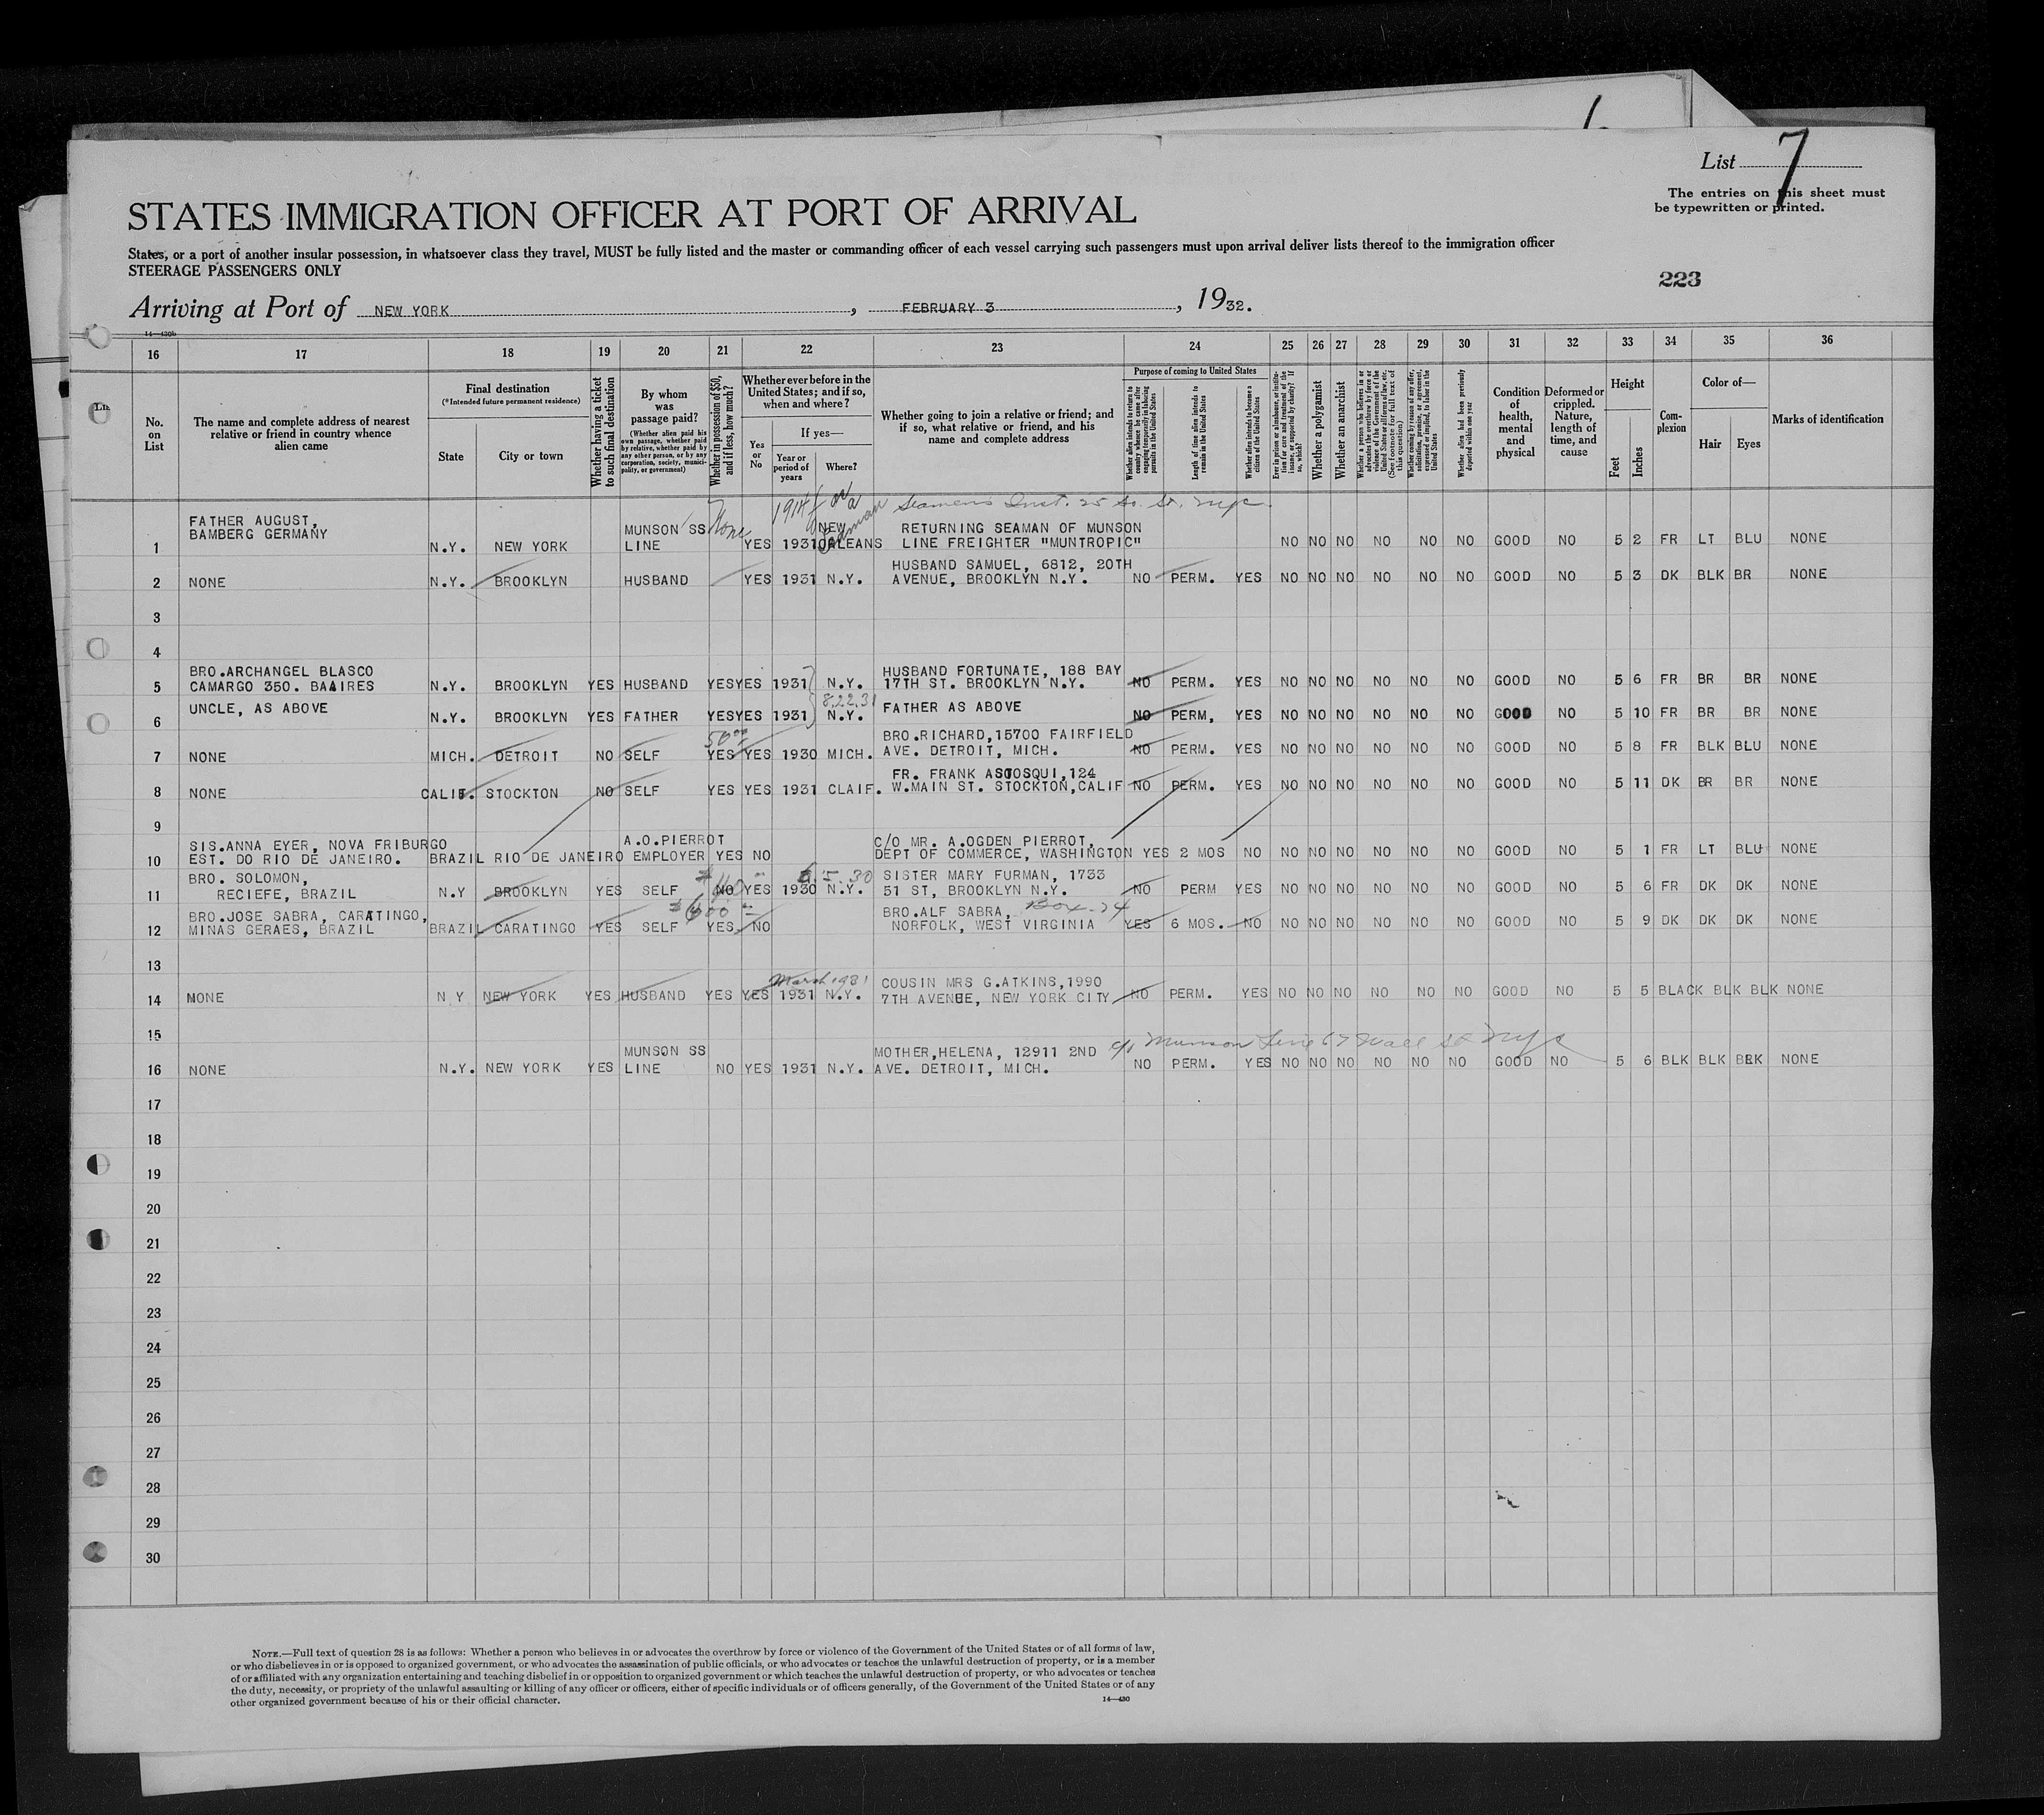 List 7
The entries on this sheet must
be typewritten or printed.
STATES IMMIGRATION OFFICER AT PORT OF ARRIVAL
States, or a port of another insular possession, in whatsoever class they travel, MUST be fully listed and the master or commanding officer of each vessel carrying such passengers must upon arrival deliver lists thereof to the immigration officer
STEERAGE PASSENGERS ONLY
223
Arriving at Port of NEW YORK, FEBRUARY 3, 1932.
14—430b
16 17 18 19 20 21 22 23 24 25 26 27 28 29 30 31 32 33 34 35 36
No. on List
The name and complete address of nearest relative or friend in country whence alien came
Final destination
(*Intended future permanent residence)
State
City or town
Whether having a ticket to such final destination
By whom was passage paid?
(Whether alien paid his own passage, whether paid by relative, whether paid by any other person, or by any corporation, society, municipality, or government)
Whether in possession of $50, and if less, how much?
Whether ever before in the United States; and if so, when and where?
Yes or No
If yes—
Year or period of years
Where?
Whether going to join a relative or friend; and if so, what relative or friend, and his name and complete address
Purpose of coming to United States
Whether alien intends to return to country whence he came after engaging temporarily in laboring pursuits in the United States
Length of time alien intends to remain in the United States
Whether alien intends to become a citizen of the United States
Ever in prison or almshouse, or institution for care and treatment of the insane, or supported by charity? If so, which?
Whether a polygamist
Whether an anarchist
Whether a person who believes in or advocates the overthrow by force or violence of the Government of the United States or all forms of law, etc. (See footnote for full text of this question)
Whether coming by reason of any offer, solicitation, promise, or agreement, expressed or implied, to labor in the United States
Whether alien had been previously deported within one year
Condition of health, mental and physical
Deformed or crippled. Nature, length of time, and cause
Height
Feet
Inches
Complexion
Color of—
Hair
Eyes
Marks of identification
1914 None Seamens Inst. 25 So. St. nyc.
FATHER AUGUST,
1 BAMBERG GERMANY N.Y. NEW YORK MUNSON SS LINE YES 1931 NEW ORLEANS RETURNING SEAMAN OF MUNSON LINE FREIGHTER "MUNTROPIC" NO NO NO NO NO NO GOOD NO 5 2 FR LT BLU NONE
2 NONE N.Y. BROOKLYN HUSBAND YES 1931 N.Y. HUSBAND SAMUEL, 6812, 20TH AVENUE, BROOKLYN N.Y. NO PERM. YES NO NO NO NO NO NO GOOD NO 5 3 DK BLK BR NONE
3
4
BRO.ARCHANGEL BLASCO
5 CAMARGO 350. BAAIRES N.Y. BROOKLYN YES HUSBAND YES YES 1931 N.Y. HUSBAND FORTUNATE, 188 BAY 17TH ST. BROOKLYN N.Y. NO PERM. YES NO NO NO NO NO NO GOOD NO 5 6 FR BR BR NONE
8.22.31
6 UNCLE, AS ABOVE N.Y. BROOKLYN YES FATHER YES YES 1931 N.Y. FATHER AS ABOVE NO PERM, YES NO NO NO NO NO NO GOOD NO 5 10 FR BR BR NONE
50 00
7 NONE MICH. DETROIT NO SELF YES YES 1930 MICH. BRO.RICHARD,15700 FAIRFIELD AVE. DETROIT, MICH. NO PERM. YES NO NO NO NO NO NO GOOD NO 5 8 FR BLK BLU NONE
8 NONE CALIF. STOCKTON NO SELF YES YES 1931 CLAIF. FR. FRANK ASTOSQUI,124 W.MAIN ST. STOCKTON,CALIF NO PERM. YES NO NO NO NO NO NO GOOD NO 5 11 DK BR BR NONE
9
SIS.ANNA EYER, NOVA FRIBURGO
10 EST. DO RIO DE JANEIRO. BRAZIL RIO DE JANEIRO A.O.PIERROT EMPLOYER YES NO C/O MR. A.OGDEN PIERROT, DEPT OF COMMERCE, WASHINGTON YES 2 MOS NO NO NO NO NO NO NO GOOD NO 5 1 FR LT BLU NONE
BRO. SOLOMON,
11 RECIEFE, BRAZIL N.Y BROOKLYN YES SELF NO YES 1930 N.Y. SISTER MARY FURMAN, 1733 51 ST, BROOKLYN N.Y. NO PERM YES NO NO NO NO NO NO GOOD NO 5 6 FR DK DK NONE
$600 Box 24
BRO.JOSE SABRA, CARATINGO,
12 MINAS GERAES, BRAZIL BRAZIL CARATINGO YES SELF YES NO BRO.ALF SABRA, NORFOLK, WEST VIRGINIA YES 6 MOS. NO NO NO NO NO NO NO GOOD NO 5 9 DK DK DK NONE
13
March 1931
14 MONE N Y NEW YORK YES HUSBAND YES YES 1931 N.Y. COUSIN MRS G.ATKINS,1990 7TH AVENUE, NEW YORK CITY NO PERM. YES NO NO NO NO NO NO GOOD NO 5 5 BLACK BLK BLK NONE
15
c/o Munson Line 67 Wall St nyc
16 NONE N.Y. NEW YORK YES MUNSON SS LINE NO YES 1931 N.Y. MOTHER,HELENA, 12911 2ND AVE. DETROIT, MICH. NO PERM. YES NO NO NO NO NO NO GOOD NO 5 6 BLK BLK BRK NONE
17
18
19
20
21
22
23
24
25
26
27
28
29
30
NOTE.—Full text of question 28 is as follows: Whether a person who believes in or advocates the overthrow by force or violence of the Government of the United States or of all forms of law,
or who disbelieves in or is opposed to organized government, or who advocates the assassination of public officials, or who advocates or teaches the unlawful destruction of property, or is a member
of or affiliated with any organization entertaining and teaching disbelief in or opposition to organized government or which teaches the unlawful destruction of property, or who advocates or teaches
the duty, necessity, or propriety of the unlawful assaulting or killing of any officer or officers, either of specific individuals or of officers generally, of the Government of the United States or of any
other organized government because of his or their official character.
14—430